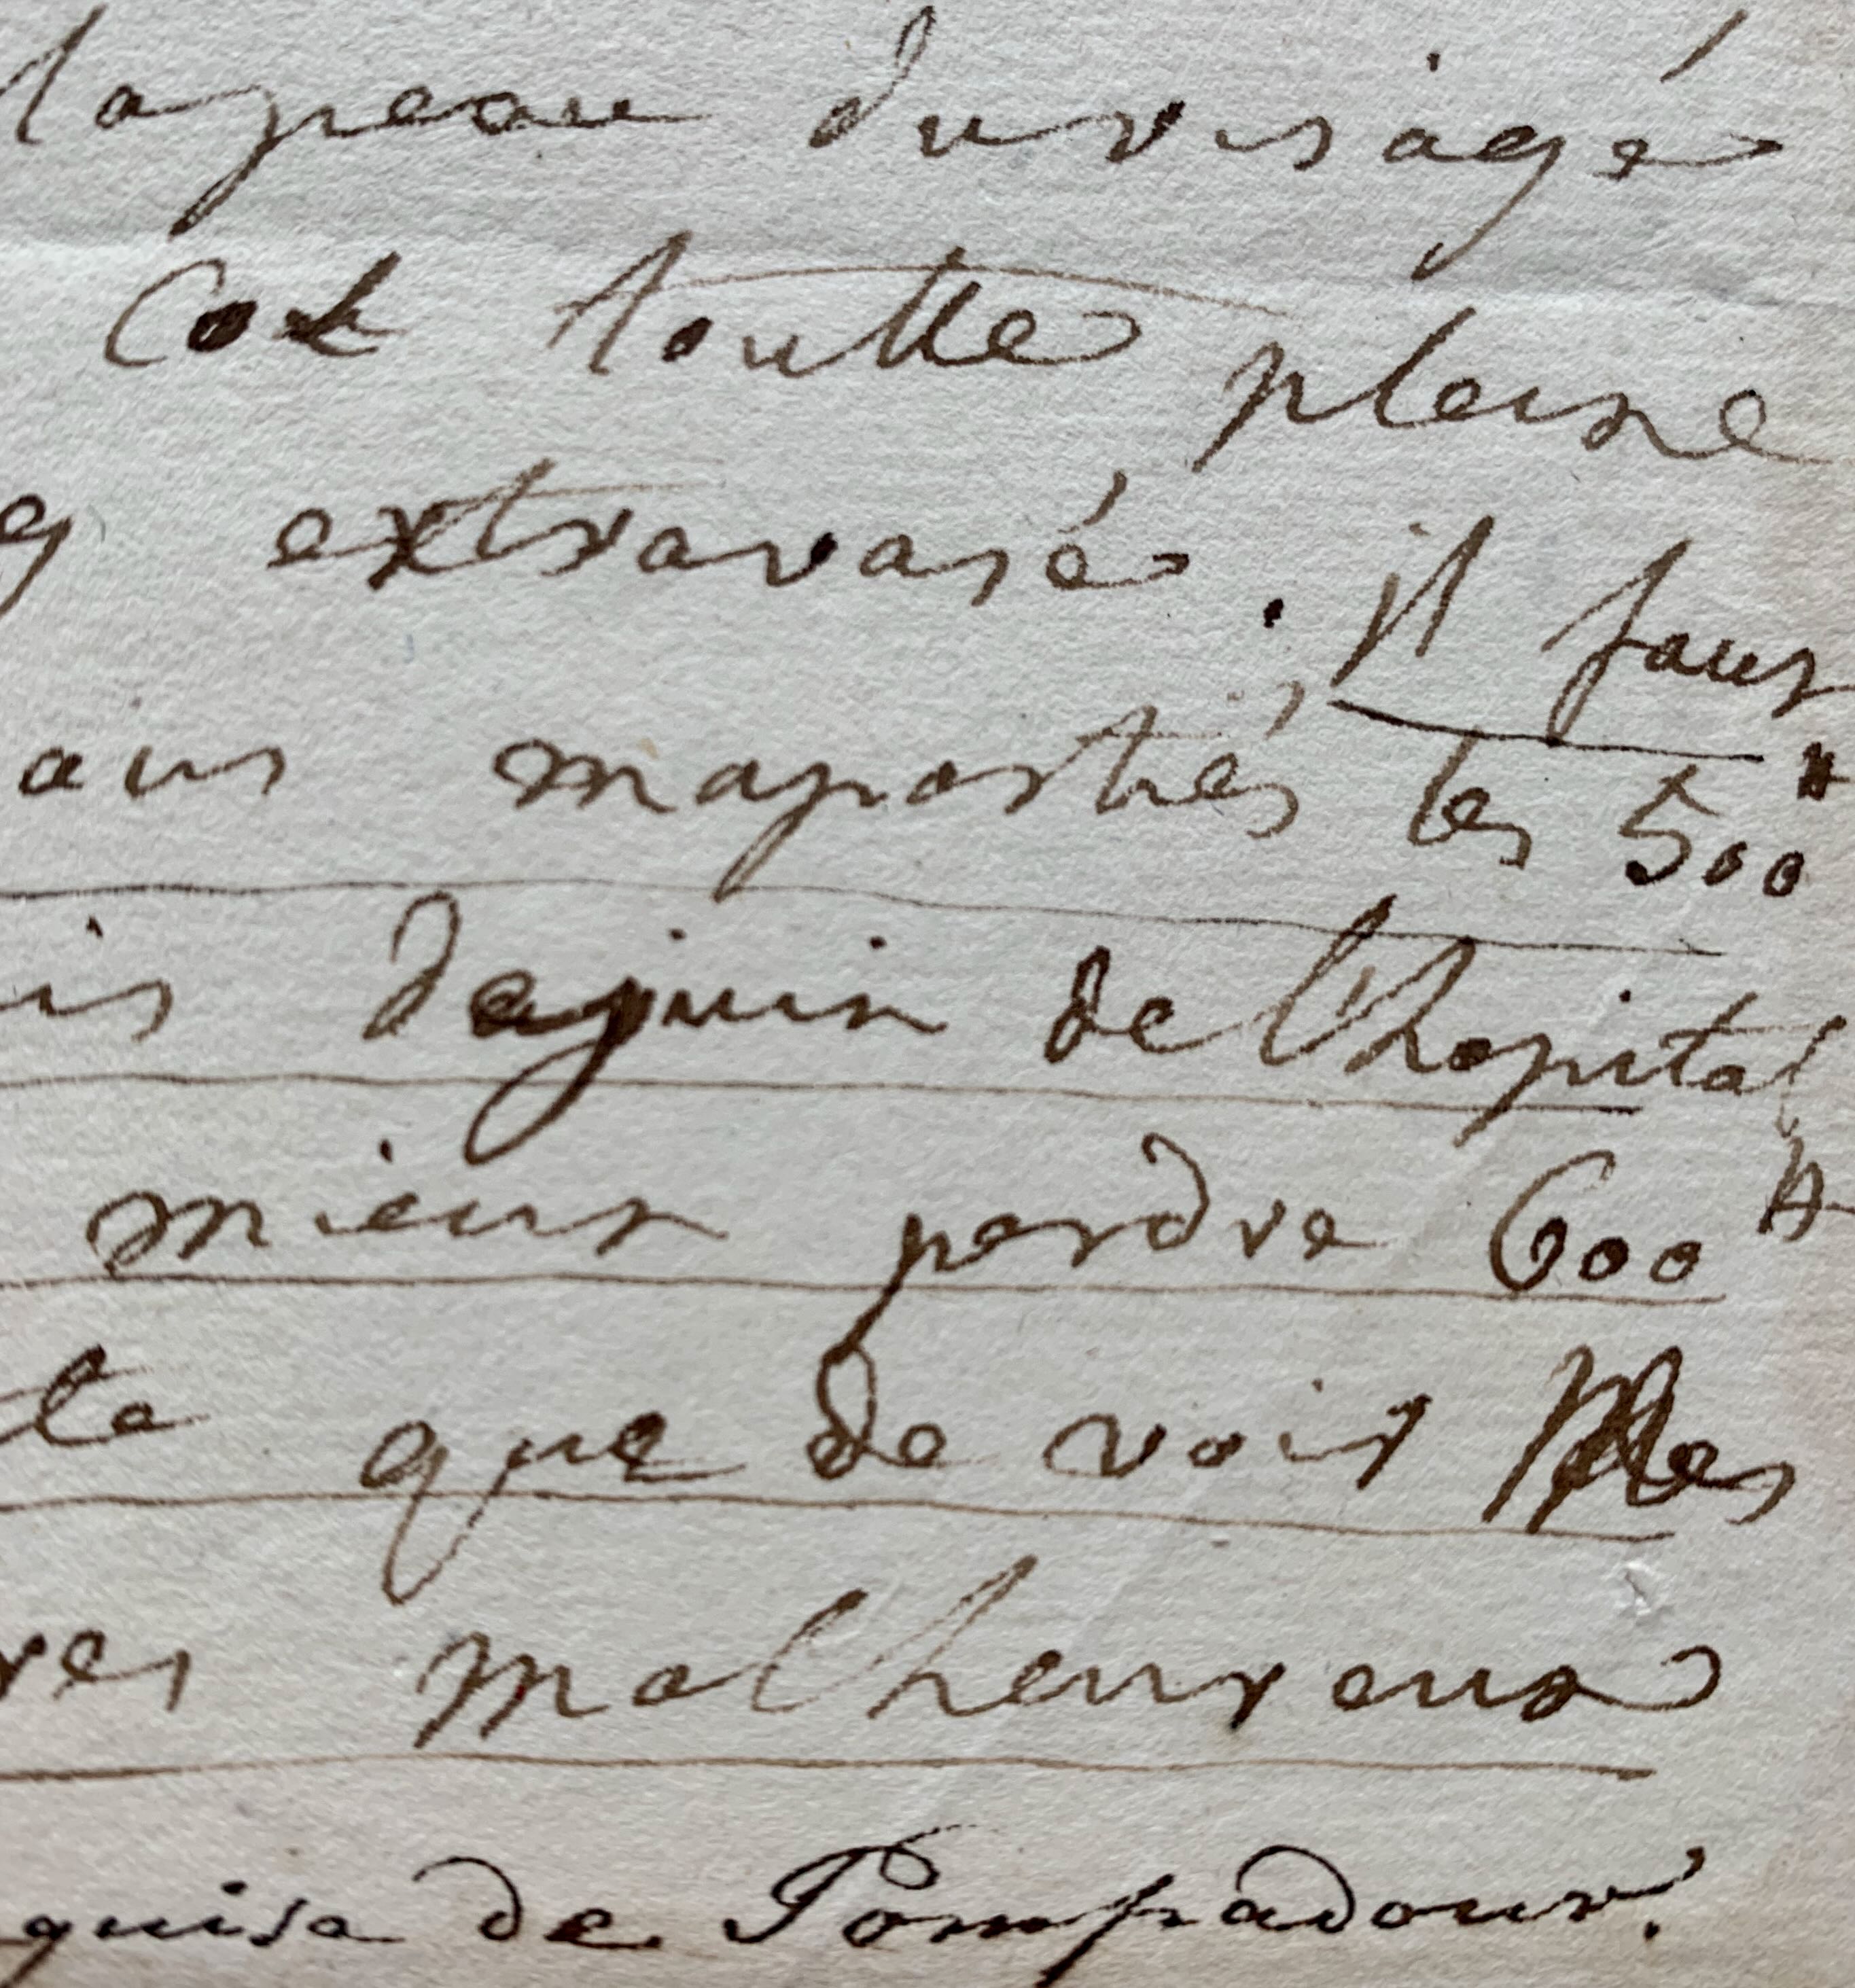 la peau du visage
Col toutte pleine
g extravasé. il faut
ous m'aportiés les 500 ₶
is de juin de l'hopital
mieux perdre 600 ₶
te que de voir les
res malheureux
quise de Pompadour.